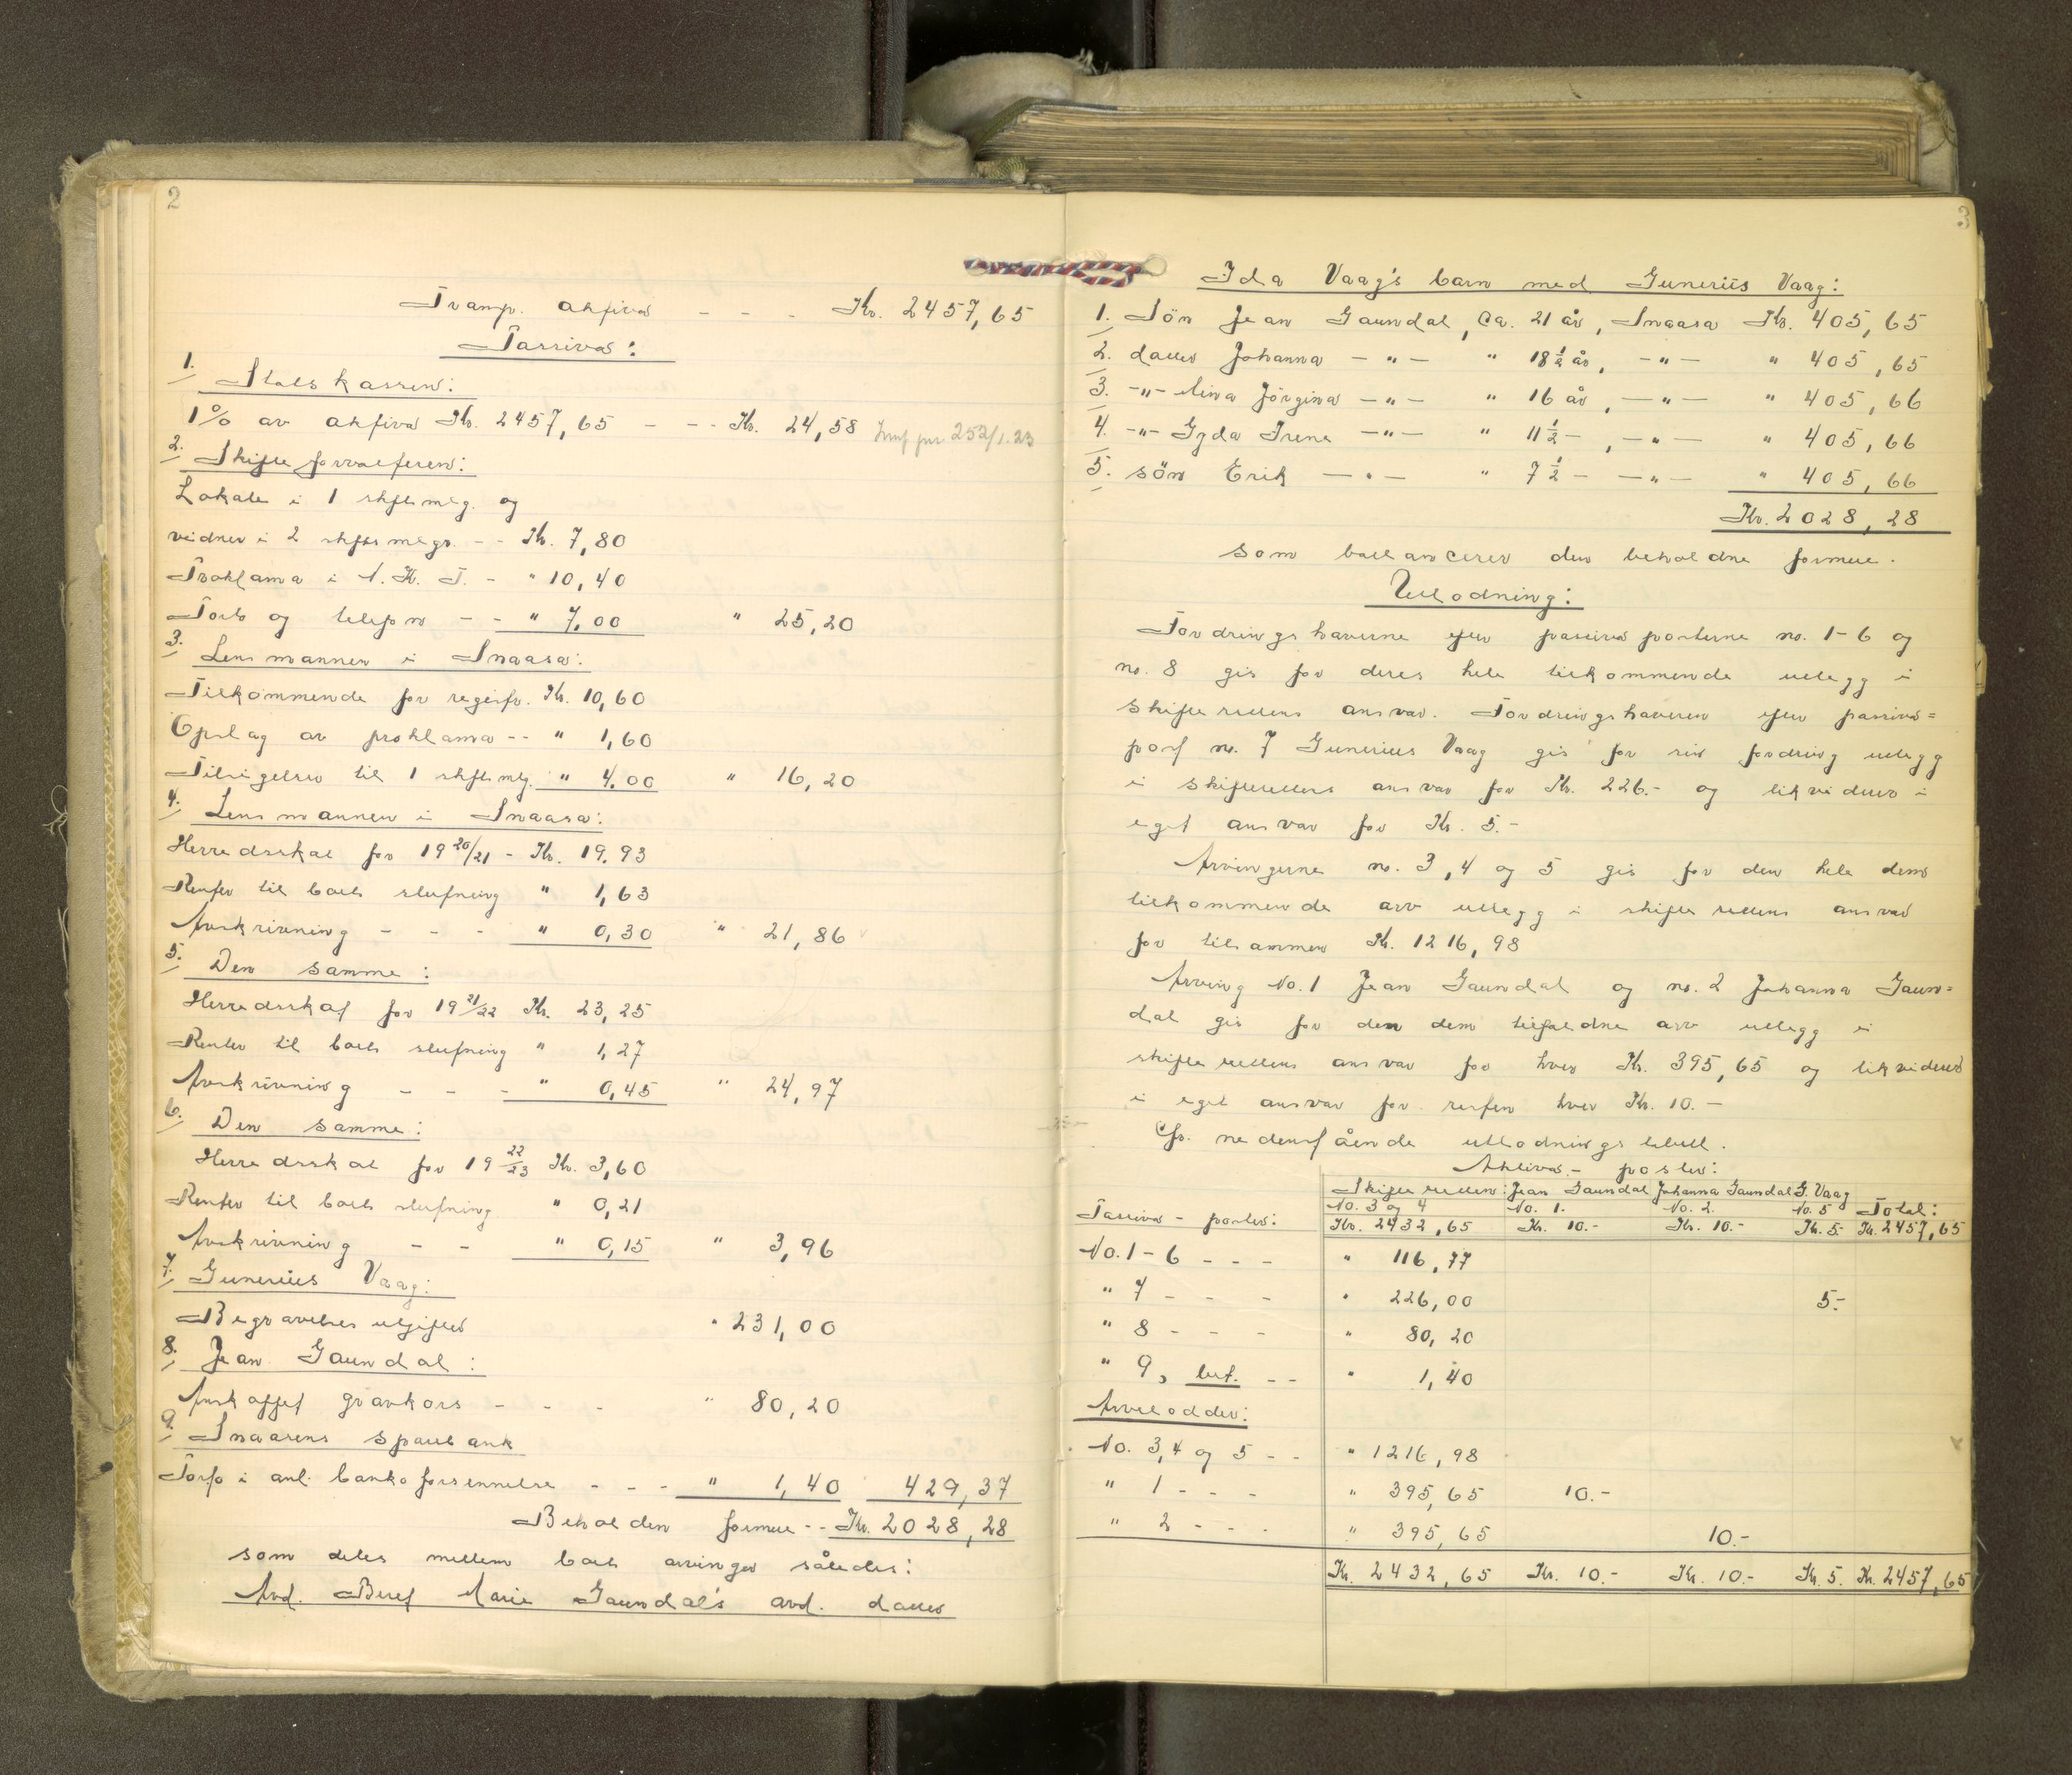 2
Transp. aktiva - - - Kr. 2457,65
Passiva:
1. Statskassen:
1% av aktiva Kr. 2457,65 - - - Kr. 24,58 252/1.23
2. Skifteforvalteren:
Lokale i 1 skiftsmlg. og
vidner i 2 skiftsmlgr. - - Kr. 7,80
Proklama i N. K. T. - " 10,40
Porto og telefon - - " 7,00 " 25,20
3. Lensmannen i Snaasa:
Tilkommende for registr. Kr. 10,60
Opslag av proklama - - " 1,60
Tilsigelser til 1 skiftsmlg. " 4,00 " 16,20
4. Lensmannen i Snaasa:
Herredsskat for 1920/21 - Kr. 19,93
Renter til boets slutning " 1,63
Avskrivning - - - " 0,30 " 21,86
5. Den samme:
Herredsskat for 1921/22 Kr. 23,25
Renter til boets slutning " 1,27
Avskrivning - - - " 0,45 " 24,97
6. Den samme:
Herredsskat for 1922/23 Kr. 3,60
Renter til boets slutning " 0,21
Avskrivning - - " 0,15 " 3,96
7. Gunerius Vaag:
Begravelsesutgifter " 231,00
8. Jean Gaundal:
Anskaffet gravkors - - - " 80,20
9. Snaasens sparebank
Porto i anl. bankoforsennelse - - - " 1,40 429,37
Beholden formue - - Kr. 2028,28
som deles mellem boets arvinger således:
Avd. Beret Marie Gaundal's avd. datter
3
Ida Vaag's barn med Gunerius Vaag:
1. Søn Jean Gaundal, ca. 21 år, Snaasa Kr. 405,65
2. datter Johanna - " - " 18 1/2 år, - " - " 405,65
3. - " - Mina Jörgina - " - " 16 år, - " - " 405,66
4. - " - Gyda Irene - " - " 11 1/2 -, - " - " 405,66
5. søn Erik - " - " 7 1/2 - - " - " 405,66
Kr. 2028,28
som ballancerer den beholdne formue.
Utlodning:
Fordringshaverne efter passivaposterne no. 1-6 og
no. 8 gis for deres hele tilkommende utlegg i
skifterettens ansvar. Fordringshaveren efter passiva=
post no. 7 Gunerius Vaag gis for sin fordring utlegg
i skifterettens ansvar for Kr. 226.- og likviderer i
eget ansvar for Kr. 5.-
Arvingerne no. 3, 4 og 5 gis for den hele dem
tilkommende arv utlegg i skifterettens ansvar
for tilsammen Kr. 1216,98
Arving No. 1 Jean Gaundal og no. 2 Johanna Gaun=
dal gis for den dem tilfaldne arv utlegg i
skifterettens ansvar for hver Kr. 395,65 og likviderer
i eget ansvar for resten hver Kr. 10.-
Cfr. nedenståënde utlodningstabell.
Aktiva - poster:
Skifteretten: Jean Gaundal Johanna Gaundal G. Vaag
Passiva - poster: No. 3 og 4 No. 1. No. 2. No. 5 Total:
Kr. 2432,65 Kr. 10.- Kr. 10.- Kr. 5.- Kr. 2457,65
No. 1-6 - - - " 116,77
" 7 - - - " 226,00 5.-
" 8 - - - " 80,20
" 9, - - " 1,40
Arvelodder:
No. 3, 4 og 5 - - " 1216,98
" 1 - - - " 395,65 10.-
" 2 - - - " 395,65 10.-
Kr. 2432,65 Kr. 10.- Kr. 10.- Kr. 5. Kr. 2457,65